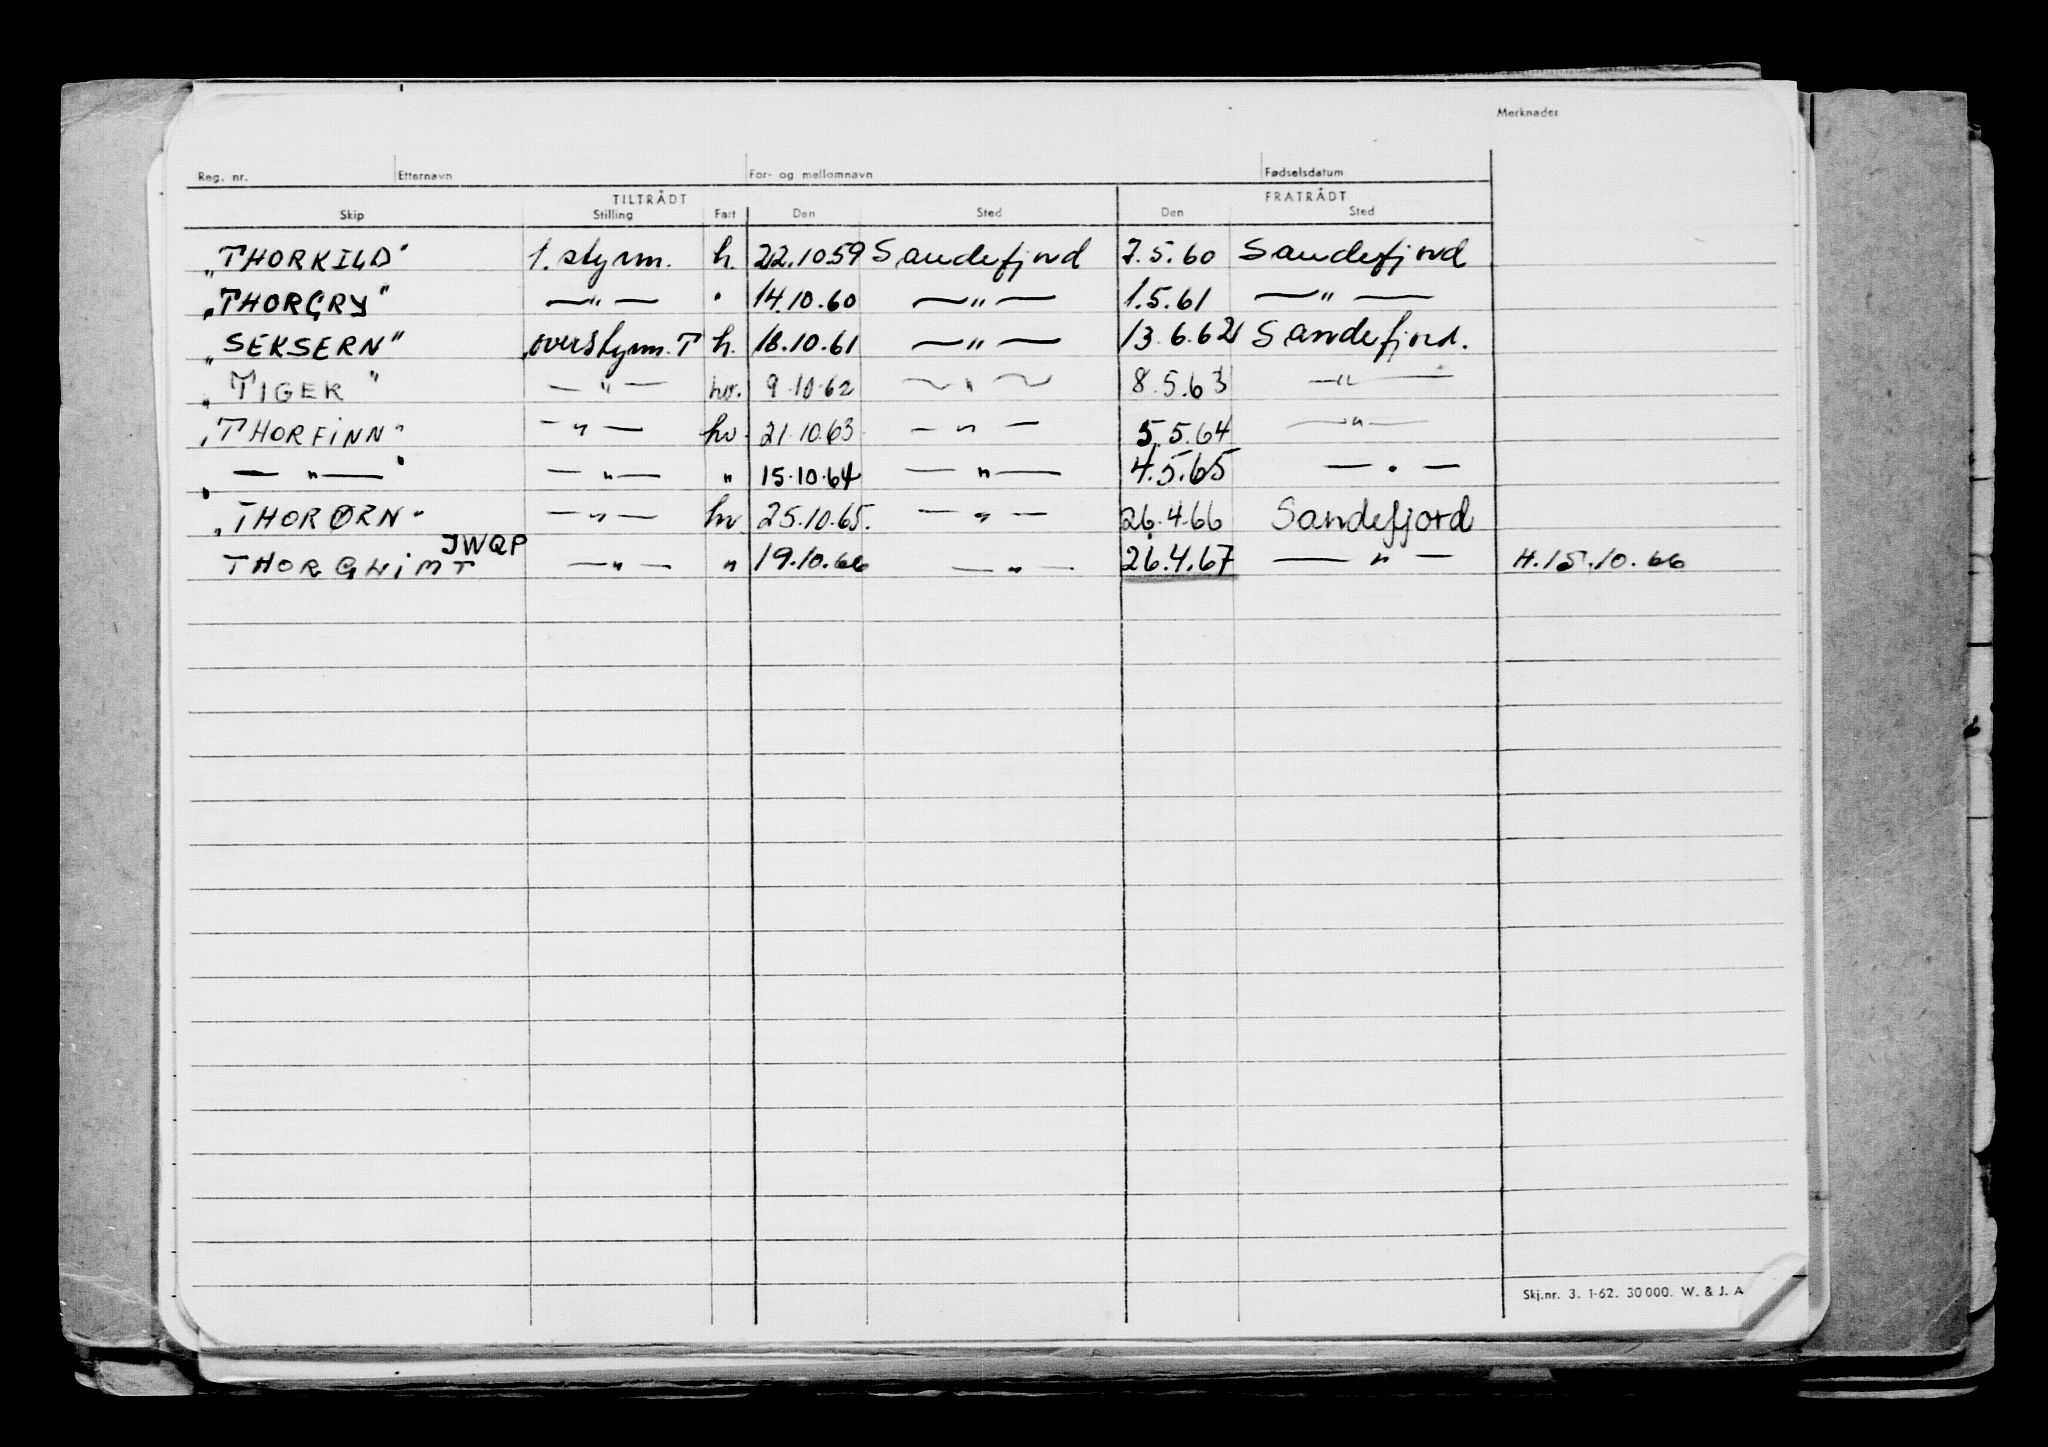 Merknader
Reg. nr. Etternavn For- og mellomnavn Fødselsdatum
TILTRÅDT FRATRÅDT
Skip Stilling Fart Den Sted Den Sted
„THORKILD" 1. styrm. h. 22.10.59 Sandefjord 7.5.60 Sandefjord
„THORGRY" —"— " 14.10.60 —"— 1.5.61 —"—
„SEKSERN" overstyrm. T h. 18.10.61 —"— 13.6.62 Sandefjord.
„TIGER" —"— hv. 9.10.62 —"— 8.5.63 —"—
„THORFINN" —"— hv. 21.10.63 —"— 5.5.64 —"—
„—"—" —"— " 15.10.64 —"— 4.5.65 —"—
„THORØRN" —"— hv 25.10.65. —"— 26.4.66 Sandefjord
JWQP
THORGLIMT —"— " 19.10.66 —"— 26.4.67 —"— H.15.10.66
Skj.nr. 3. 1-62. 30 000. W. & J. A